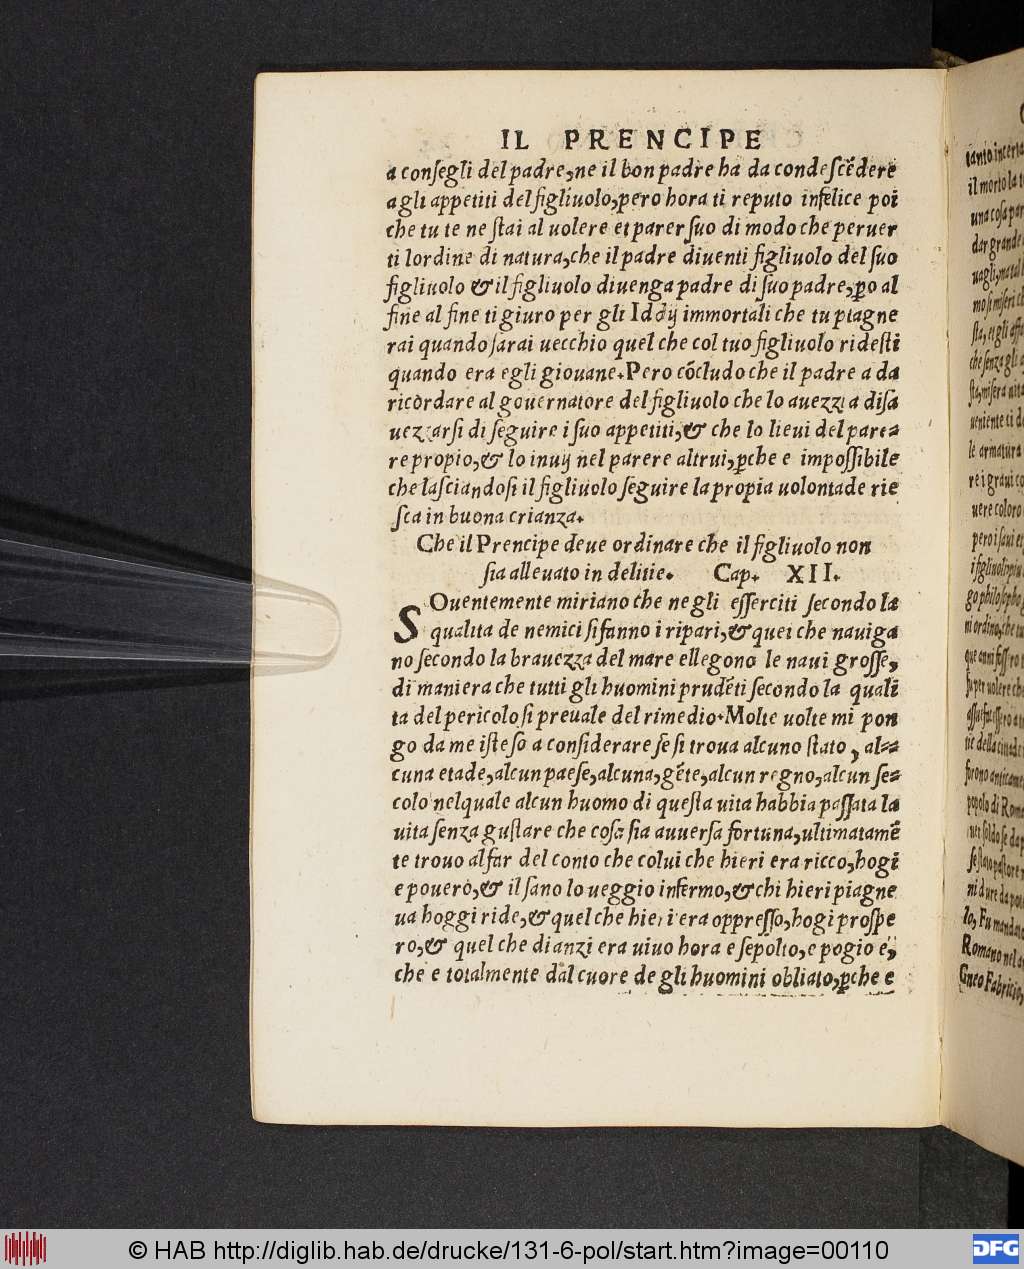 IL PRENCIPE
a conſegli del padre, ne il bon padre ha da condeſcẽdere
agli appetiti del figliuolo, pero hora ti reputo infelice poi
che tu te ne ſtai al uolere et parer ſuo di modo che peruer
ti lordine di natura, che il padre diuenti figliuolo del ſuo
figliuolo & il figliuolo diuenga padre di ſuo padre, ꝑo al
fine al fine ti giuro per gli Iddij immortali che tu piagne
rai quando ſarai uecchio quel che col tuo figliuolo rideſti
quando era egli giouane. Pero cõcludo che il padre a da
ricordare al gouernatore del figliuolo che lo auezzi a diſa
uezzarſi di ſeguire i ſuo appetiti, & che lo lieui del pare=
re propio, & lo inuij nel parere altrui, ꝑche e impoſſibile
che laſciandoſi il figliuolo ſeguire la propia uolontade rie
ſca in buona crianza.
Che il Prencipe deue ordinare che il figliuolo non
ſia alleuato in delitie. Cap. XII.
SOuentemente miriano che ne gli eſſerciti ſecondo la
qualita de nemici ſi fanno i ripari, & quei che nauiga
no ſecondo la brauezza del mare ellegono le naui groſſe,
di maniera che tutti gli huomini prudẽti ſecondo la quali
ta del pericolo ſi preuale del rimedio. Molte uolte mi pon
go da me iſteſo a conſiderare ſe ſi troua alcuno ſtato, al=
cuna etade, alcun paeſe, alcuna, gẽte, alcun regno, alcun ſe=
colo nelquale alcun huomo di queſta uita habbia paſſata la
uita ſenza guſtare che coſa ſia auuerſa fortuna, ultimatamẽ
te trouo al far del conto che colui che hieri era ricco, hogi
e pouero, & il ſano lo ueggio infermo, & chi hieri piagne
ua hoggi ride, & quel che hieri era oppreſſo, hogi proſpe
ro, & quel che dianzi era uiuo hora e ſepolto, e pogio e,
che e totalmente dal cuore de gli huomini obliato, ꝑche e
tanto incerta
il morto la
una coſa
dar grande
ſenza gli
le armatura
re i graui
uere coloro
pero i ſaui
go philoſopho
popolo di Roma
lo, Fu mandato
Romano nel
Gneo Fabricio,
© HAB http://diglib.hab.de/drucke/131-6-pol/start.htm?image=00110
DFG